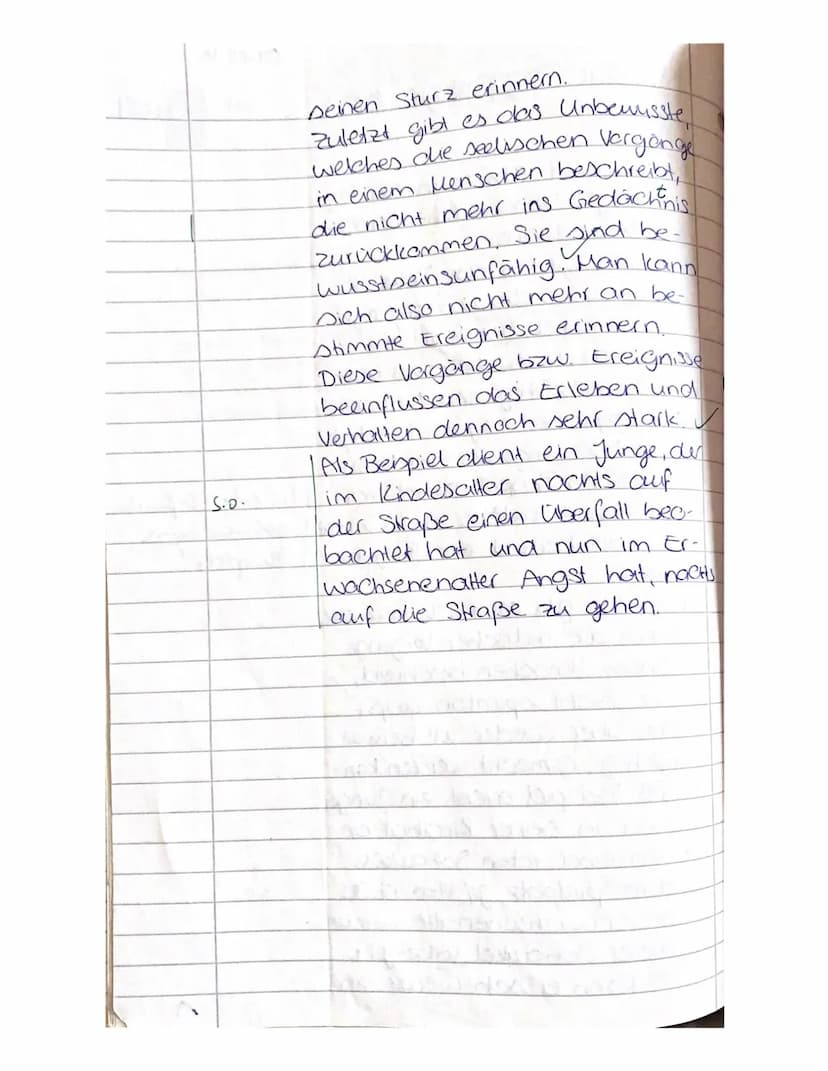 seinen Sturz erinnern.
Zuletzt gibt es das Unbewusste,
welches die seelischen Vorgänge
in einem Menschen beschreibt,
die nicht mehr ins Gedächtnis
zurückkommen. Sie sind be-
wusstseinsunfähig. Man kann
sich also nicht mehr an be-
stimmte Ereignisse erinnern.
Diese Vorgänge bzw. Ereignisse
beeinflussen das Erleben und
Verhalten dennoch sehr stark. ✓
Als Beispiel dient ein Junge, der
s.o. im Kindesalter nachts auf
der Straße einen Überfall beo-
bachtet hat und nun im Er-
wachsenenalter Angst hat, nachts
auf die Straße zu gehen.